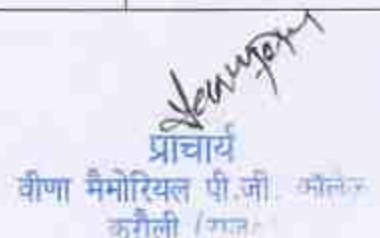 प्राचार्य
वीणा मैमोरियल पी.जी. कॉलेज
करौली (राज.